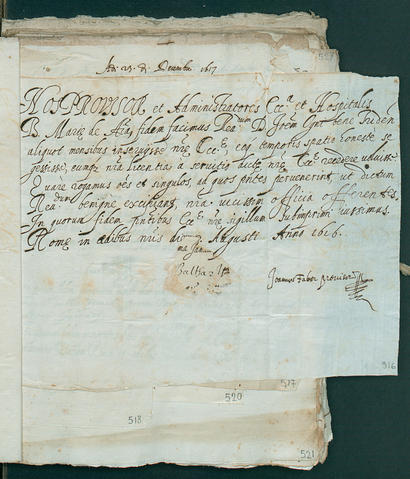 Adi 29 di Decembre 1617
NOS PROVISOR, et Administratores Ecc.æ et Hospitalis
B. Mariæ de A͠ia fidem facimus Rea.dum D. Joem
aliquot mensibus inserviisse n͠re Ecc.æ, eoq temporis spatio honeste se
gessisse, eumq n͠ra licentia à servitio dictæ n͠re Ecc.æ recedere
Quare rogamus o͠es et singulos, ad quos p͠ntes pervenerint ut dictum
Rea.dum benigne excipiant, n͠ra vicissim officia offerentes.
In quorum fidem p͠ntibus Ecc.æ n͠re sigillum subimprimi iussimus.
Romæ in ædibus n͠ris die Augusti Anno 1616.
Joannes Faber provisor
516
517
520
518
521